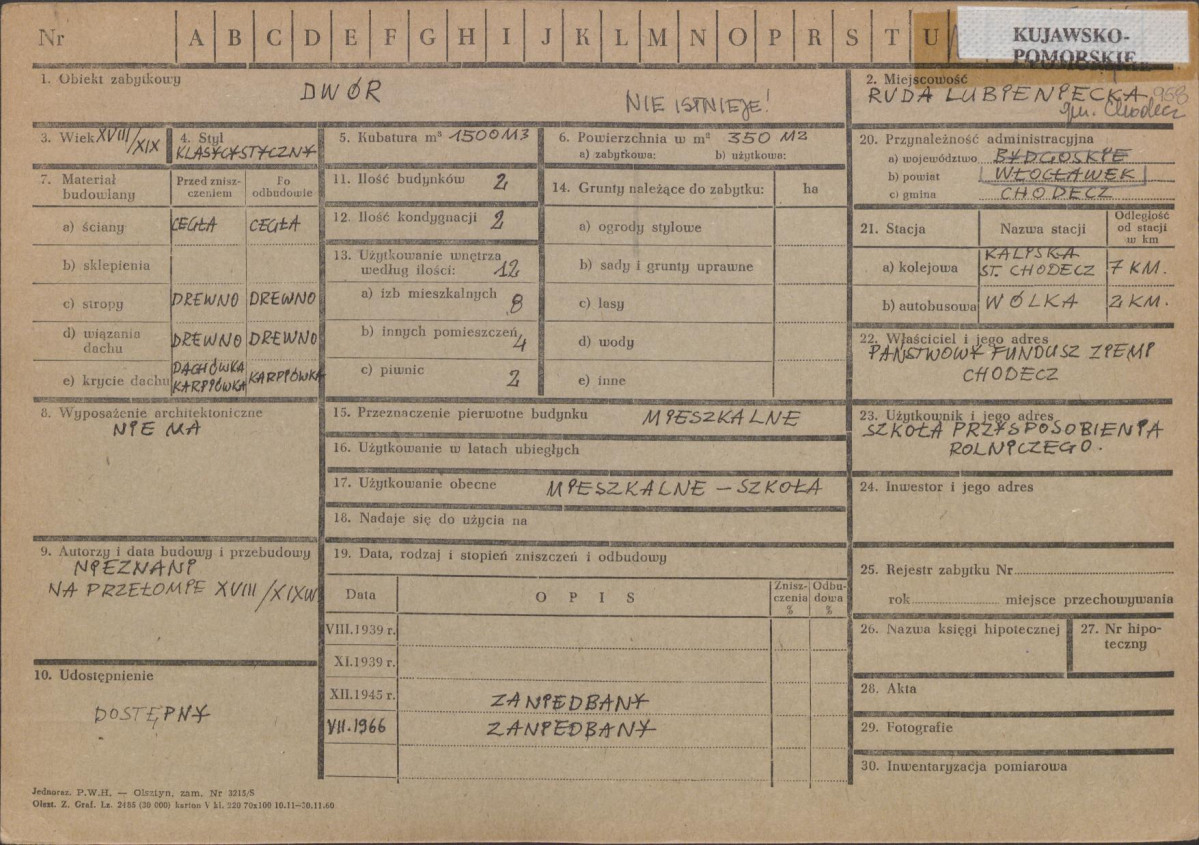 Nr A B C D E F G H I J K L M N O P R S T U
KUJAWSKO-
POMORSKIE
1. Obiekt zabytkowy
DWÓR
NIE ISTNIEJE!
2. Miejscowość
RUDA LUBIENIECKA, 958
gm. Chodecz
3. Wiek XVIII/XIX
4. Styl
KLASYCYSTYCZNY
5. Kubatura m³ 1500 M3
6. Powierzchnia w m² 350 M2
a) zabytkowa: b) użytkowa:
7. Materiał budowlany
Przed zniszczeniem
Po odbudowie
a) ściany CEGŁA CEGŁA
b) sklepienia
c) stropy DREWNO DREWNO
d) wiązania dachu DREWNO DREWNO
e) krycie dachu DACHÓWKA KARPIÓWKA KARPIÓWKA
8. Wyposażenie architektoniczne
NIE MA
9. Autorzy i data budowy i przebudowy
NIEZNANI
NA PRZEŁOMIE XVIII/XIXW
10. Udostępnienie
DOSTĘPNY
11. Ilość budynków 2
12. Ilość kondygnacji 2
13. Użytkowanie wnętrza
według ilości: 12
a) izb mieszkalnych 8
b) innych pomieszczeń 4
c) piwnic 2
14. Grunty należące do zabytku: ha
a) ogrody stylowe
b) sady i grunty uprawne
c) lasy
d) wody
e) inne
15. Przeznaczenie pierwotne budynku MIESZKALNE
16. Użytkowanie w latach ubiegłych
17. Użytkowanie obecne MIESZKALNE – SZKOŁA
18. Nadaje się do użycia na
19. Data, rodzaj i stopień zniszczeń i odbudowy
Data OPIS Zniszczenia % Odbudowa %
VIII.1939 r.
XI.1939 r.
XII.1945 r. ZANIEDBANY
VII.1966 ZANIEDBANY
20. Przynależność administracyjna
a) województwo BYDGOSKIE
b) powiat WŁOCŁAWEK
c) gmina CHODECZ
21. Stacja Nazwa stacji Odległość od stacji w km
a) kolejowa KALISKA
ST. CHODECZ 7 KM.
b) autobusowa WÓLKA 2 KM.
22. Właściciel i jego adres
PAŃSTWOWY FUNDUSZ ZIEMI
CHODECZ
23. Użytkownik i jego adres
SZKOŁA PRZYSPOSOBIENIA
ROLNICZEGO.
24. Inwestor i jego adres
25. Rejestr zabytku Nr
rok miejsce przechowywania
26. Nazwa księgi hipotecznej
27. Nr hipoteczny
28. Akta
29. Fotografie
30. Inwentaryzacja pomiarowa
Jednoraz. P.W.H. — Olsztyn, zam. Nr 3215/S
Olszt. Z. Graf. Lz. 2455 (30 000) karton V kl. 220 70x100 10.11—30.11.60